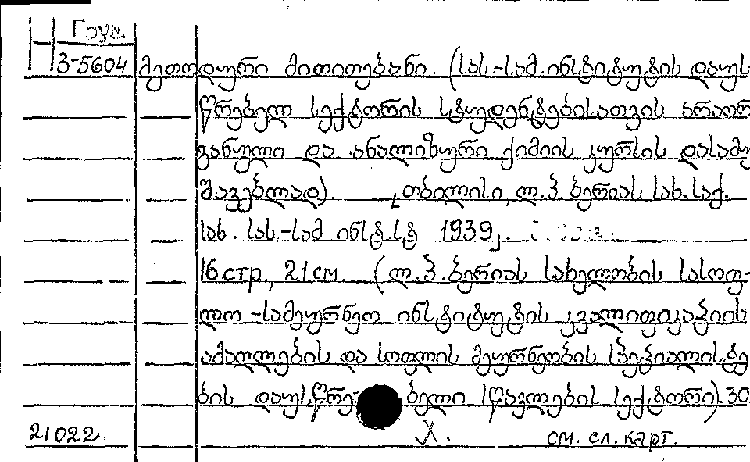 Груз.
3-5604 მეთოდური მითითებანი (სას.-სამ. ინსტიტუტის დაუს-
წრებელ სექტორის სტუდენტებისათვის არაორ-
განული და ანალიზური ქიმიის კურსის დასამუ
შავებლად) თბილისი, ლ. პ. ბერიას სახ. საქ.
სახ. სას.-სამ ინსტ. სტ. 1939
16 стр., 21 см. (ლ. პ. ბერიას სახელობის სასოფ-
ლო-სამეურნეო ინსტიტუტის კვალიფიკაციის
ამაღლების და სოფლის მეურნეობის სპეციალისტე
ბის დაუსწრებელი სწავლების სექტორი) 30
21022 X. см. сл. карт.